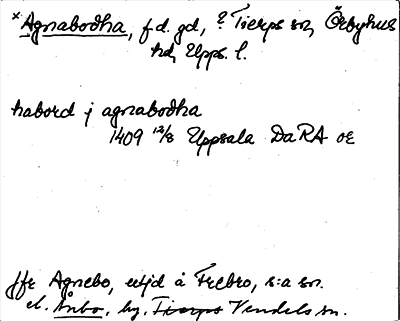 ×Agnabodha, f d. gd, ? Tierps sn, Örbyhus
hd, Upps. l.
habord j agnabodha
1409 12/8 Uppsala DaRA oe
Jfr Agnebo, utjd å Frebro, s:a sn.
el. Ånbo, by, Tierps Vendels sn.